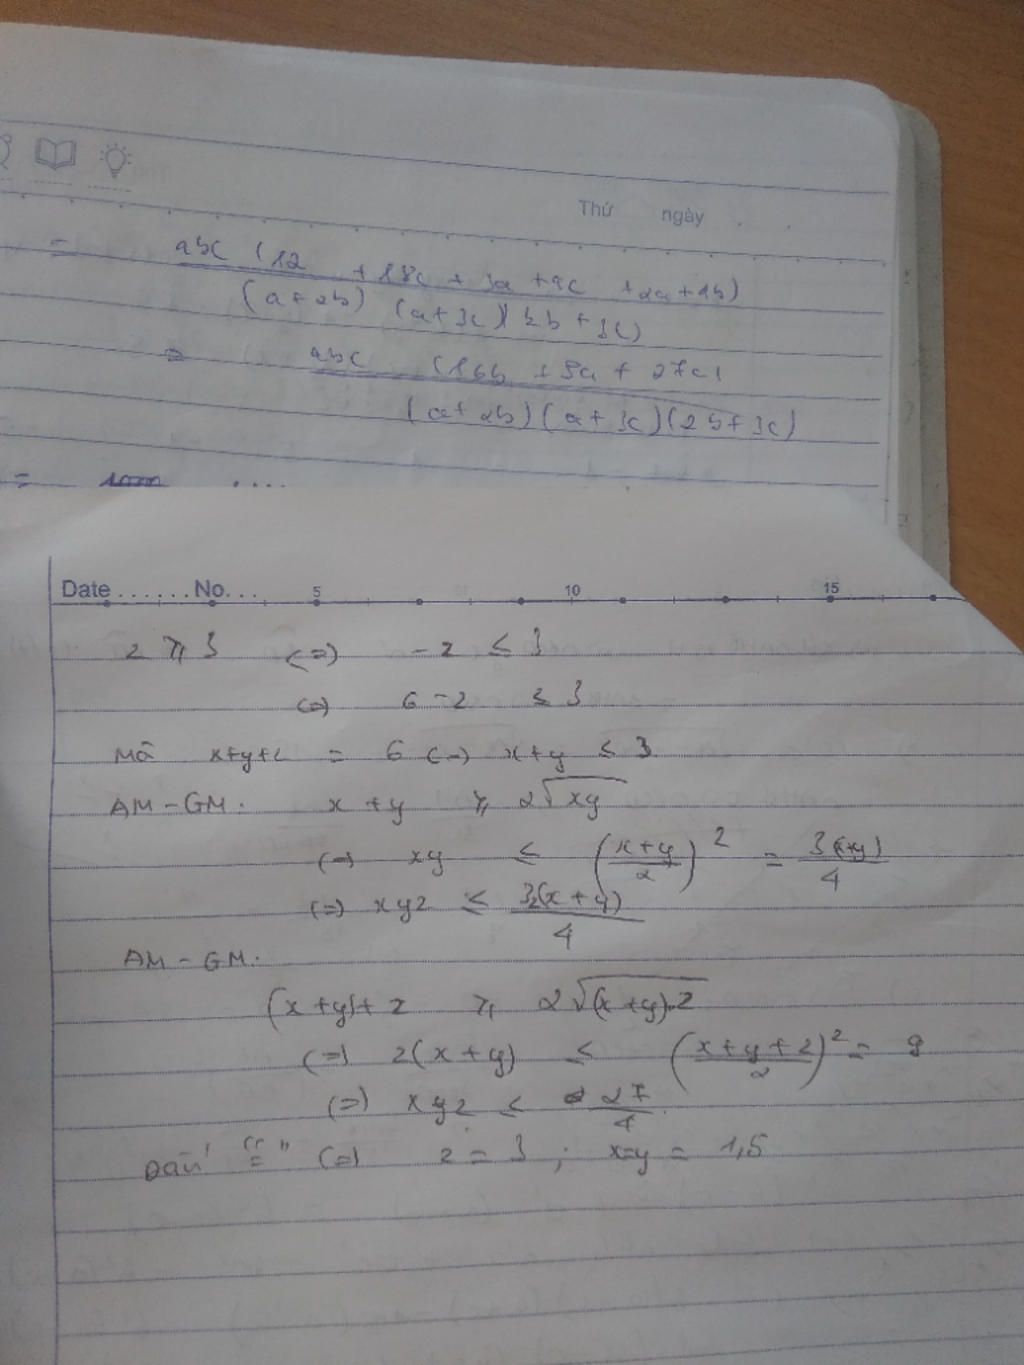 Thứ ngày
= abc (12 + 18c + 3a + 9c + 2a + 4b)
(a+2b) (a+3c)(2b+3c)
= abc (16b + 5a + 27c)
(a+2b)(a+3c)(2b+3c)
= ....
Date ...... No... 5 10 15
z ⩾ 3 (=) -z ≤ 3
(=) 6-z ≤ 3
Mà x+y+z = 6 (=) x+y ≤ 3
AM-GM. x+y ⩾ 2√xy
(=) xy ≤ (x+y/2)² = 3(x+y)/4
(=) xyz ≤ 3z(x+y)/4
AM-GM.
(x+y)+z ⩾ 2√(x+y).z
(=) z(x+y) ≤ (x+y+z/2)² = 9
(=) xyz ≤ 27/4
Dấu "=" (=) z=3; x=y=1,5